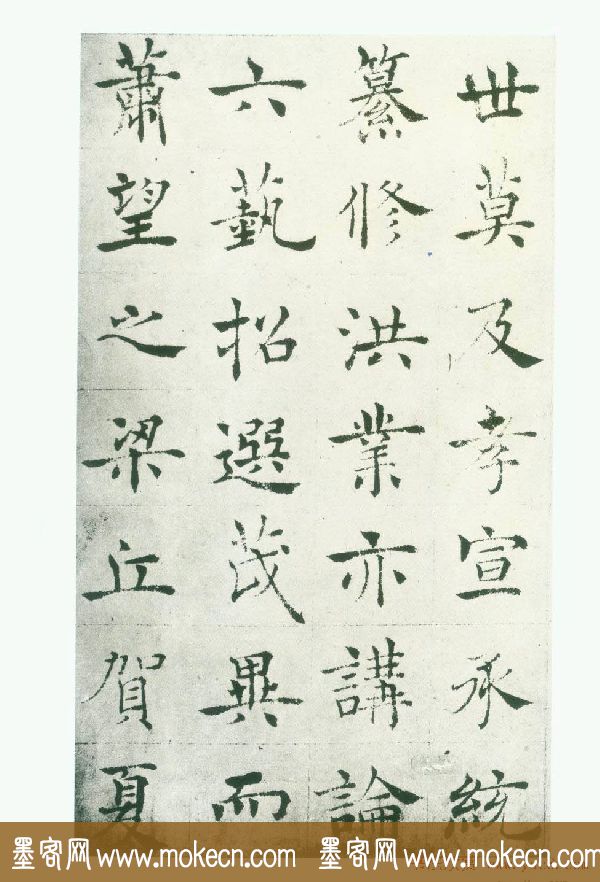 世莫及孝宣承統
纂修洪業亦講論
六藝招選茂異而
蕭望之梁丘賀夏
墨客网 www.mokecn.com 墨客网 www.mokecn.com